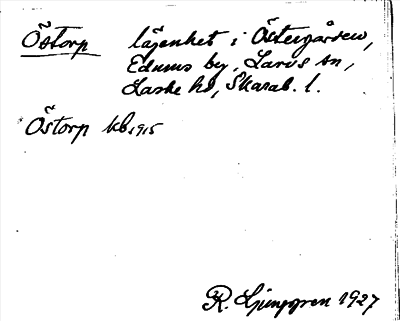 Östorp lägenhet i Östergården,
Edums by, Larvs sn,
Laske hd, Skarab. l.
Östorp kb 1915
R. Ljunggren 1927